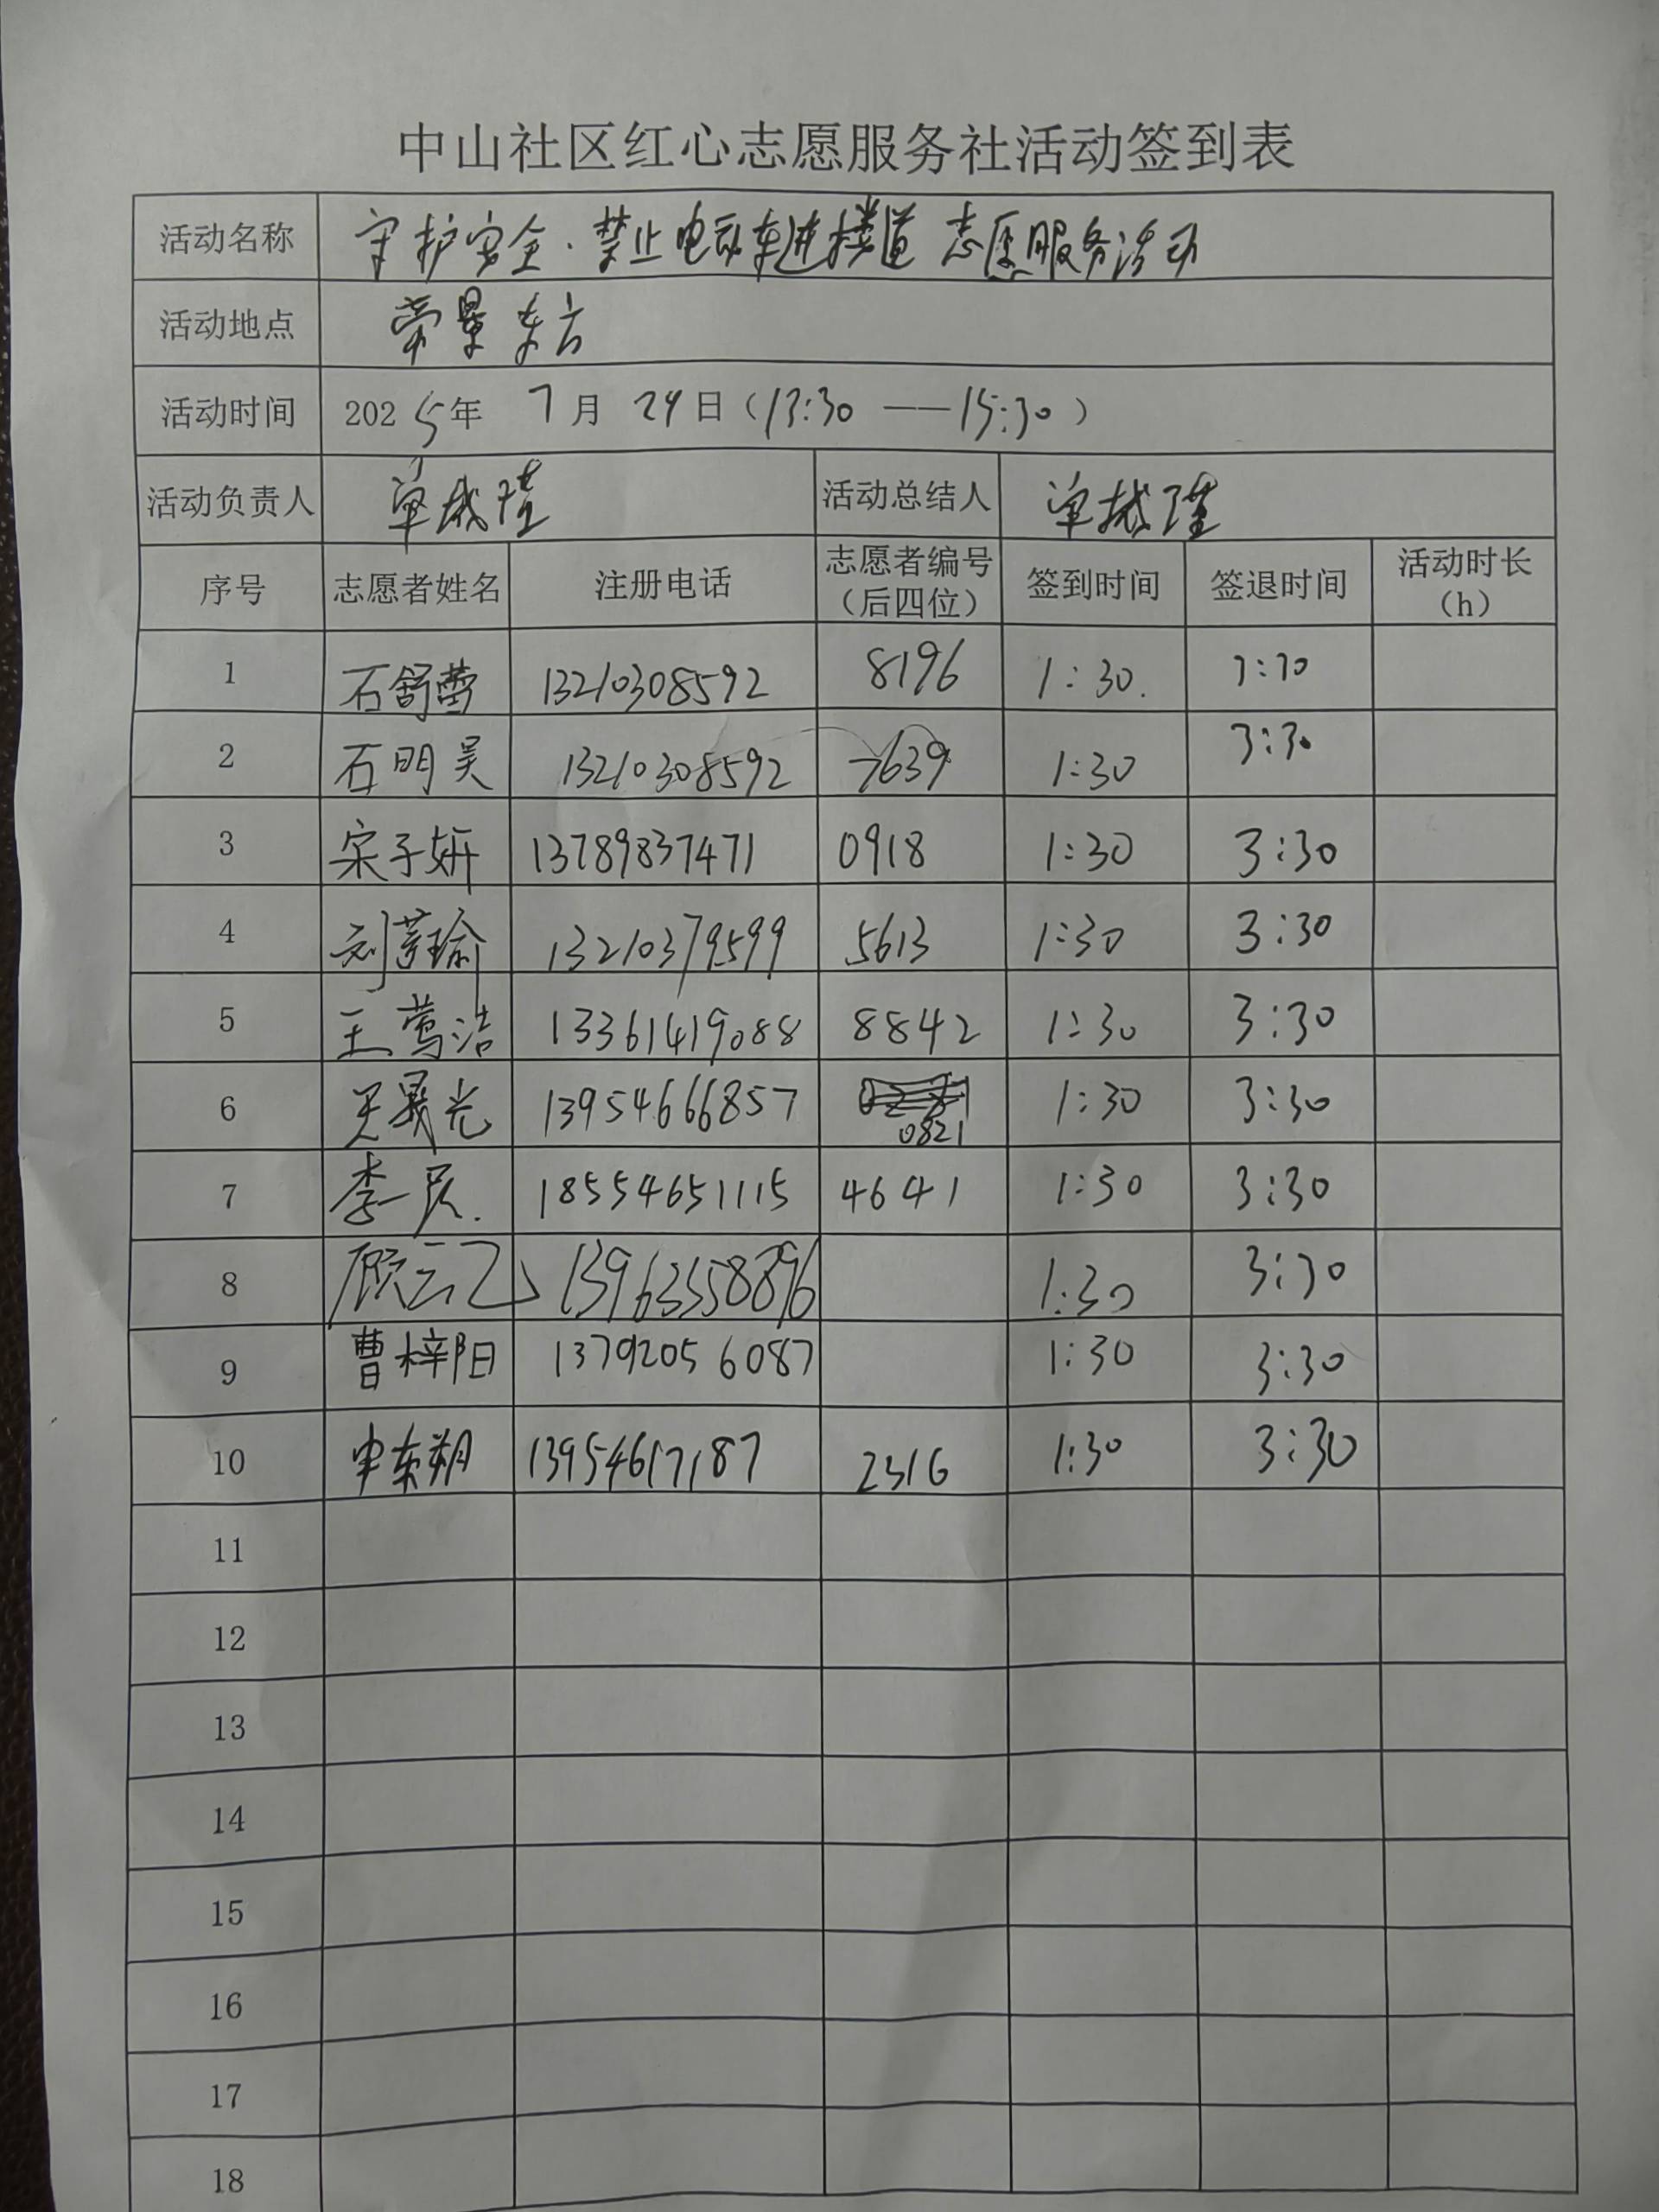 中山社区红心志愿服务社活动签到表
活动名称 守护安全·禁止电动车进楼道 志愿服务活动
活动地点 荣景东方
活动时间 2025年 7月 24日（13:30 —— 15:30）
活动负责人 单 活动总结人 单
序号 志愿者姓名 注册电话 志愿者编号（后四位） 签到时间 签退时间 活动时长（h）
1 石舒蕾 13210308592 8196 1:30.
2 石明昊 13210308592 7639 1:30 3:30
3 宋子妍 13789837471 0918 1:30 3:30
4 刘瑜 13210379599 5613 1:30 3:30
5 王莺浩 13361419088 8842 1:30 3:30
6 光 13954666857 0821 1:30 3:30
7 李一辰. 18554651115 4641 1:30 3:30
8 顾云飞 13963358896 1:30 3:30
9 曹梓阳 13792056087 1:30 3:30
10 申东朔 13954617187 2316 1:30 3:30
11
12
13
14
15
16
17
18